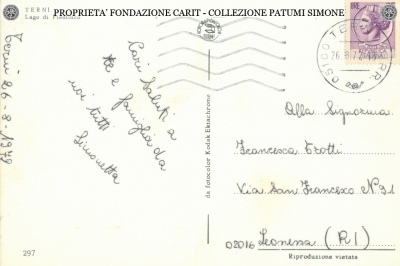 PROPRIETA' FONDAZIONE CARIT - COLLEZIONE PATUMI SIMONE
TERNI
Lago di Piediluco
Terni 26-8-1972
Cari Saluti a
te e famiglia da
noi tutti
Simonetta
da fotocolor Kodak Ektachrome
Alla Signorina
Francesca Trotti
Via San Francesco N 91
02016 Leonessa (RI)
Riproduzione vietata
297
05100 TERNI